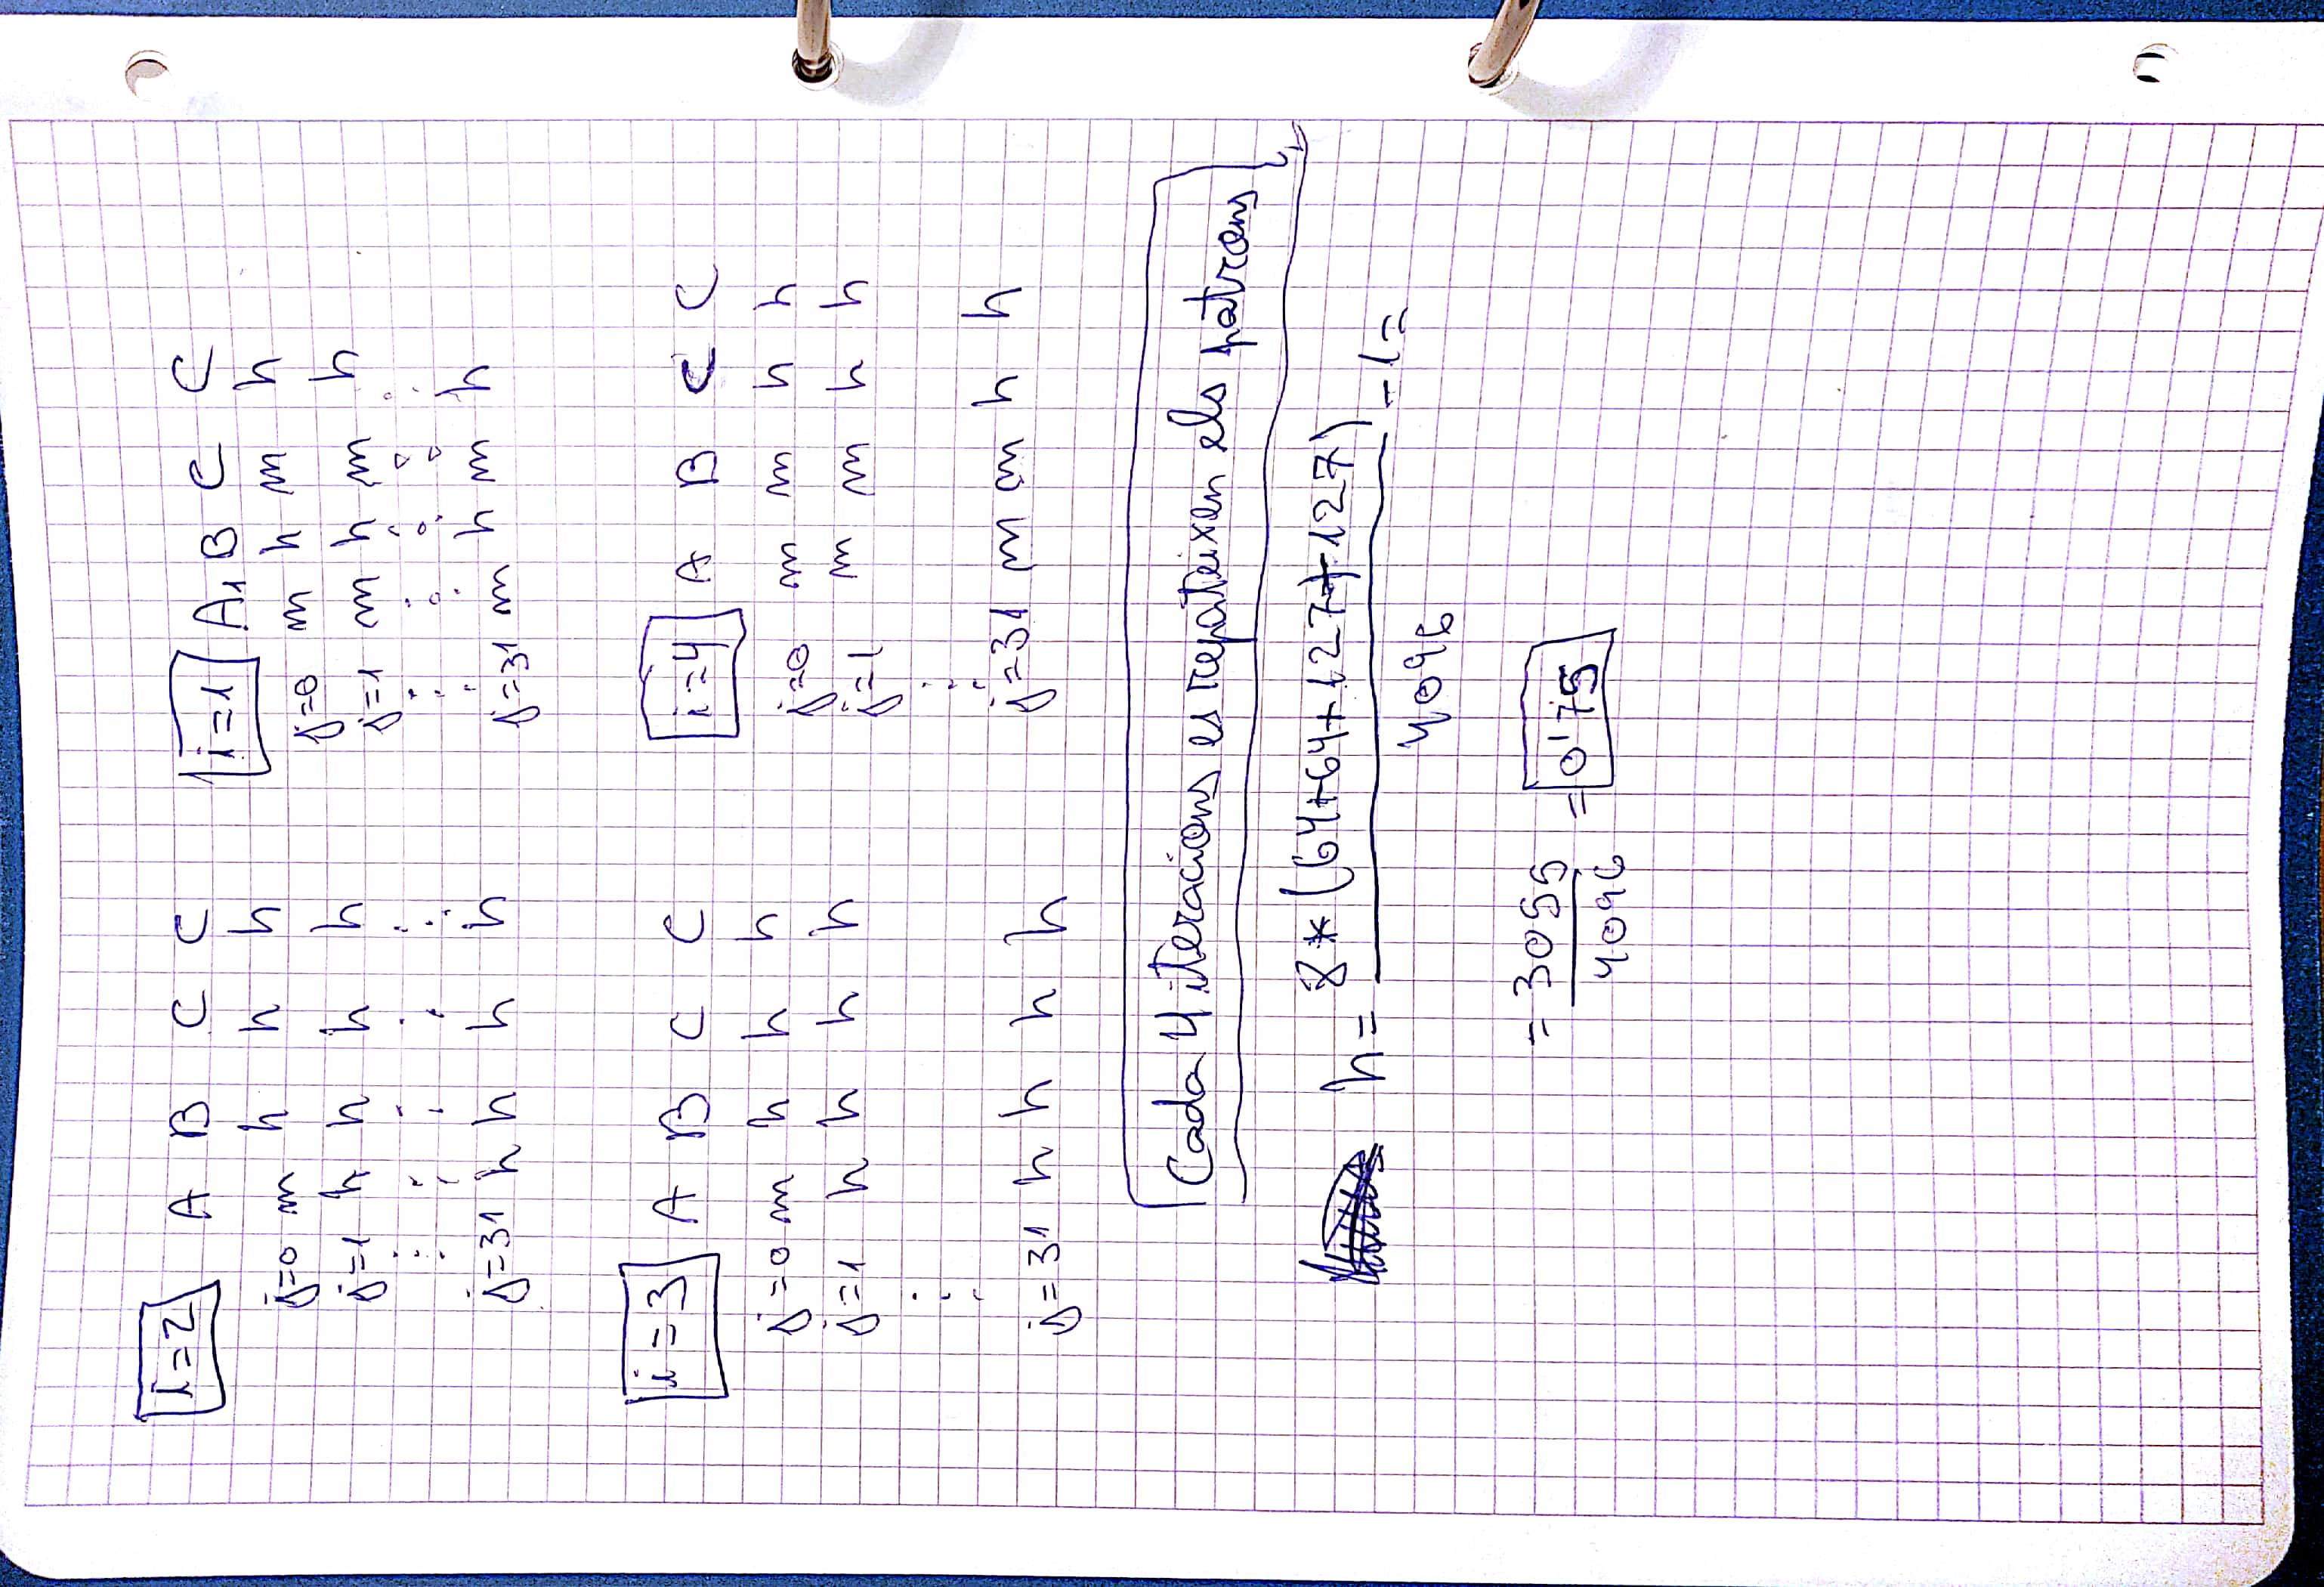 i=2 A B C C
j=0 m h h h
j=1 h h h h
⋮ ⋮ ⋮ ⋮ ⋮
j=31 h h h h
i=1 A1 B C C
j=0 m h m h
j=1 m h m h
⋮ ⋮ ⋮ ⋮ ⋮
j=31 m h m h
i=3 A B C C
j=0 m h h h
j=1 h h h h
⋮
j=31 h h h h
i=4 A B C C
j=0 m m h h
j=1 m m h h
⋮
j=31 m m h h
Cada 4 iteracions es repateixen els patrons
h = 8*(64+64+127+127) / 4096 - 1 =
= 3055 / 4096 = 0'75